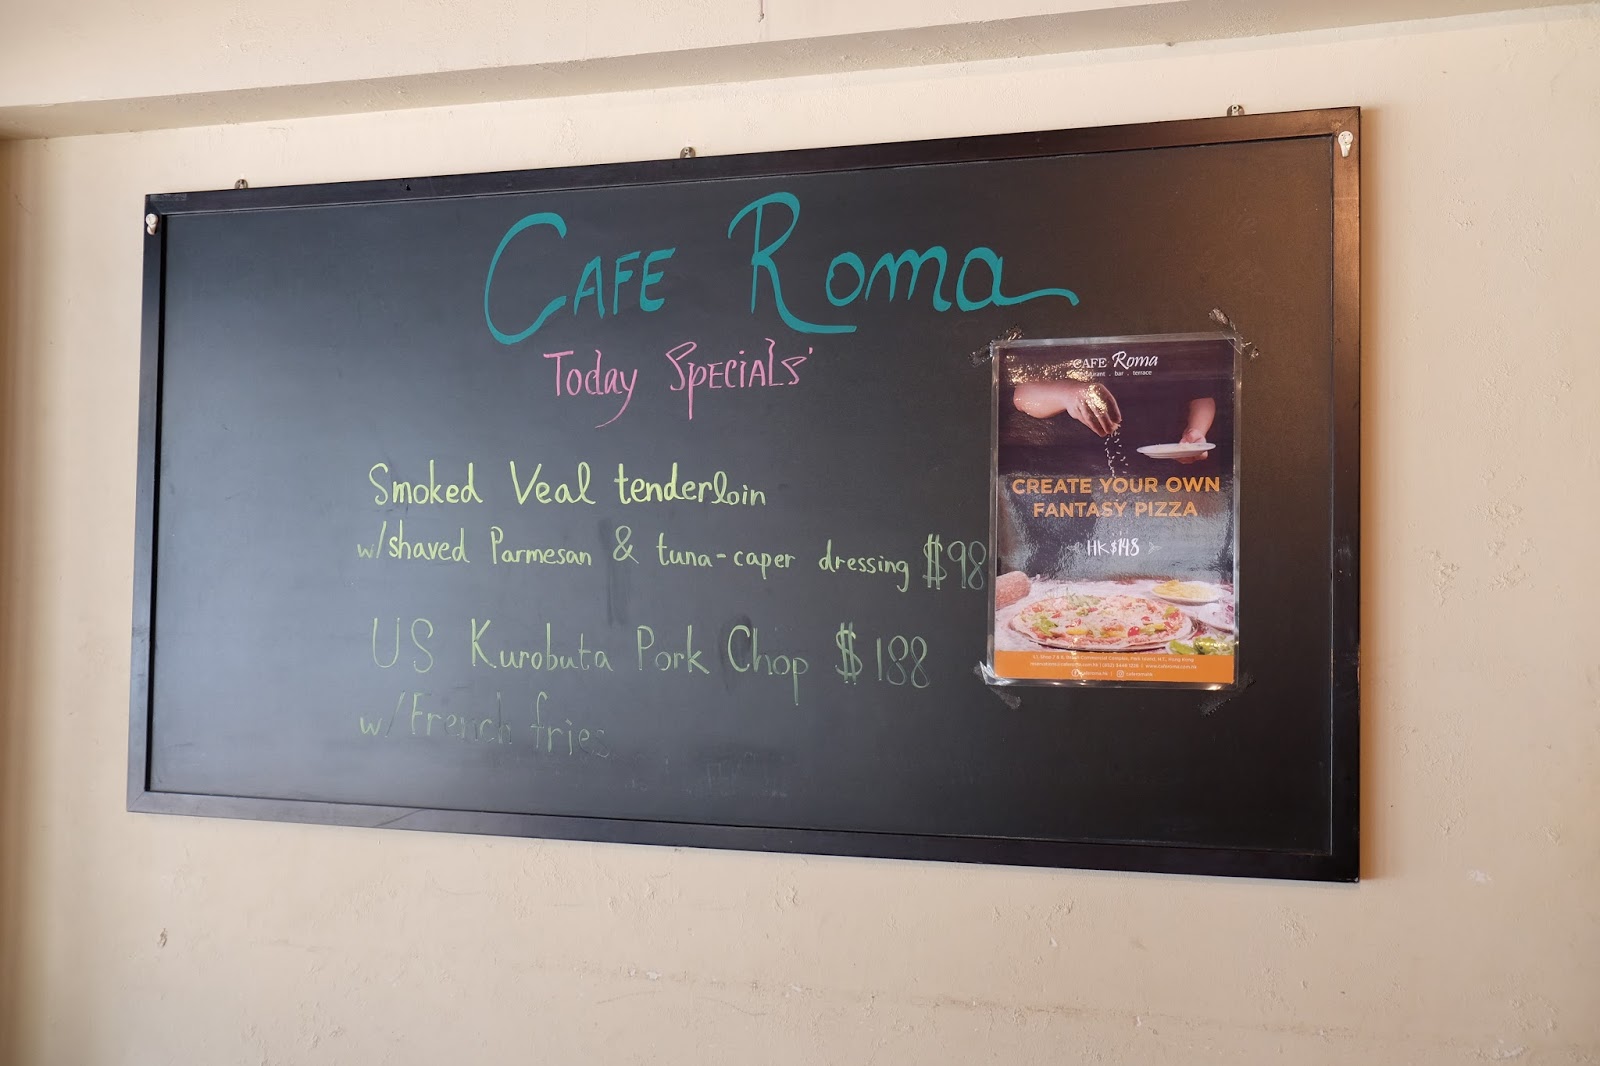 CAFE Roma
Today SPECIALS'
Smoked Veal tenderloin
w/shaved Parmesan & tuna-caper dressing $98
US Kurobuta Pork Chop $188
w/French fries
CAFE Roma
bar . terrace
CREATE YOUR OWN
FANTASY PIZZA
HK$148